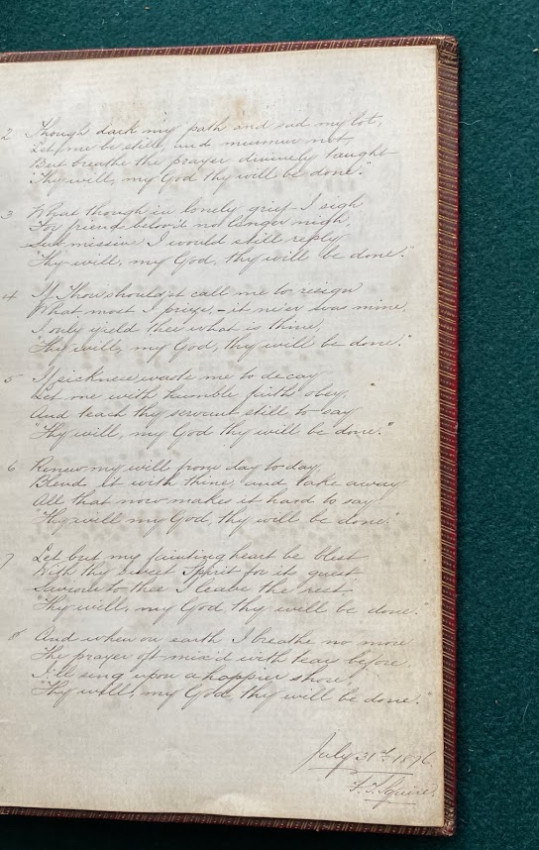 2 Though dark my path and sad my lot,
Let me be still, and murmur not,
But breathe the prayer divinely taught
"Thy will, my God thy will be done."
3 What though in lonely grief I sigh
For friends belov'd no longer nigh,
Submissive I would still reply
"Thy will, my God, thy will be done."
4 If Thou shouldst call me to resign
What most I prize, - it ne'er was mine,
I only yield thee what is thine,
"Thy will, my God, thy will be done."
5 If sickness waste me to decay
Let me with humble faith obey,
And teach thy servant still to say
"Thy will, my God thy will be done."
6 Renew my will from day to day,
Blend it with thine, and take away
All that now makes it hard to say
"Thy will my God, thy will be done."
7 Let but my fainting heart be blest
With thy sweet Spirit for its guest
Saviour to thee I leave the rest
"Thy will, my God, thy will be done."
8 And when on earth I breathe no more
The prayer oft mix'd with tears before,
I'll sing upon a happier shore,
"Thy will, my God, thy will be done."
July 31st. 1876.